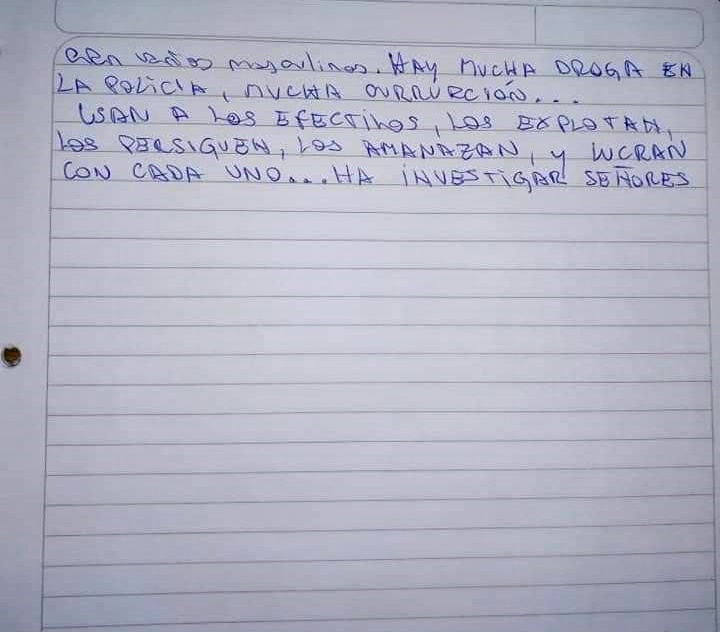 en varios masculinos. HAY MUCHA DROGA EN
LA POLICIA, MUCHA CURRURCIÓN...
USAN A LOS EFECTIVOS, LOS EXPLOTAN,
LOS PERSIGUEN, LOS AMANAZAN, y LUCRAN
CON CADA UNO... HA INVESTIGAR SEÑORES